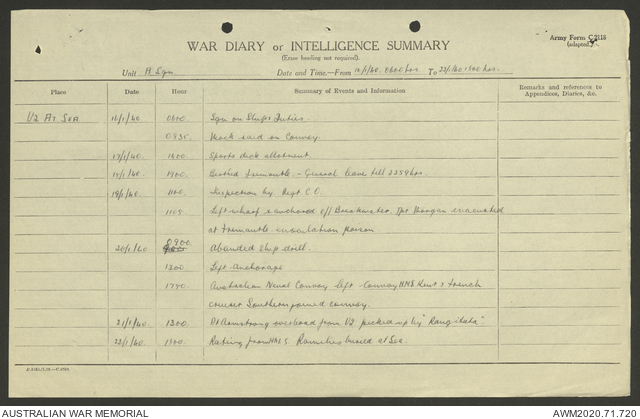 Army Form C2118
(adapted)
WAR DIARY or INTELLIGENCE SUMMARY
(Erase heading not required).
Unit A Sqn Date and Time.—From 16/1/40. 0600 hrs To 22/1/40 1900 hrs.
Place Date Hour Summary of Events and Information Remarks and references to
Appendices, Diaries, &c.
V2 At Sea 16/1/40 0600 Sqn on Ships Duties.
0935 Mock raid on Convoy
17/1/40. 1400 Sports deck allotment.
18/1/40. 1900 Berthed Fremantle. - General leave till 2359 hrs.
19/1/40 1100 Inspection by Regt C.O.
1105 Left wharf & anchored off Breakwater. Tpr evacuated
at Fremantle
20/1/40 0900 Abandon Ship drill.
1300 Left Anchorage
Australian Naval Convoy left - Convoy HMS Kent & French
cruiser joined convoy.
21/1/40 1300 overboard from V2 picked up by "Rangitata"
22/1/40. 1900 Rating from HMS Ramillies buried at Sea.
AUSTRALIAN WAR MEMORIAL
AWM2020.71.720